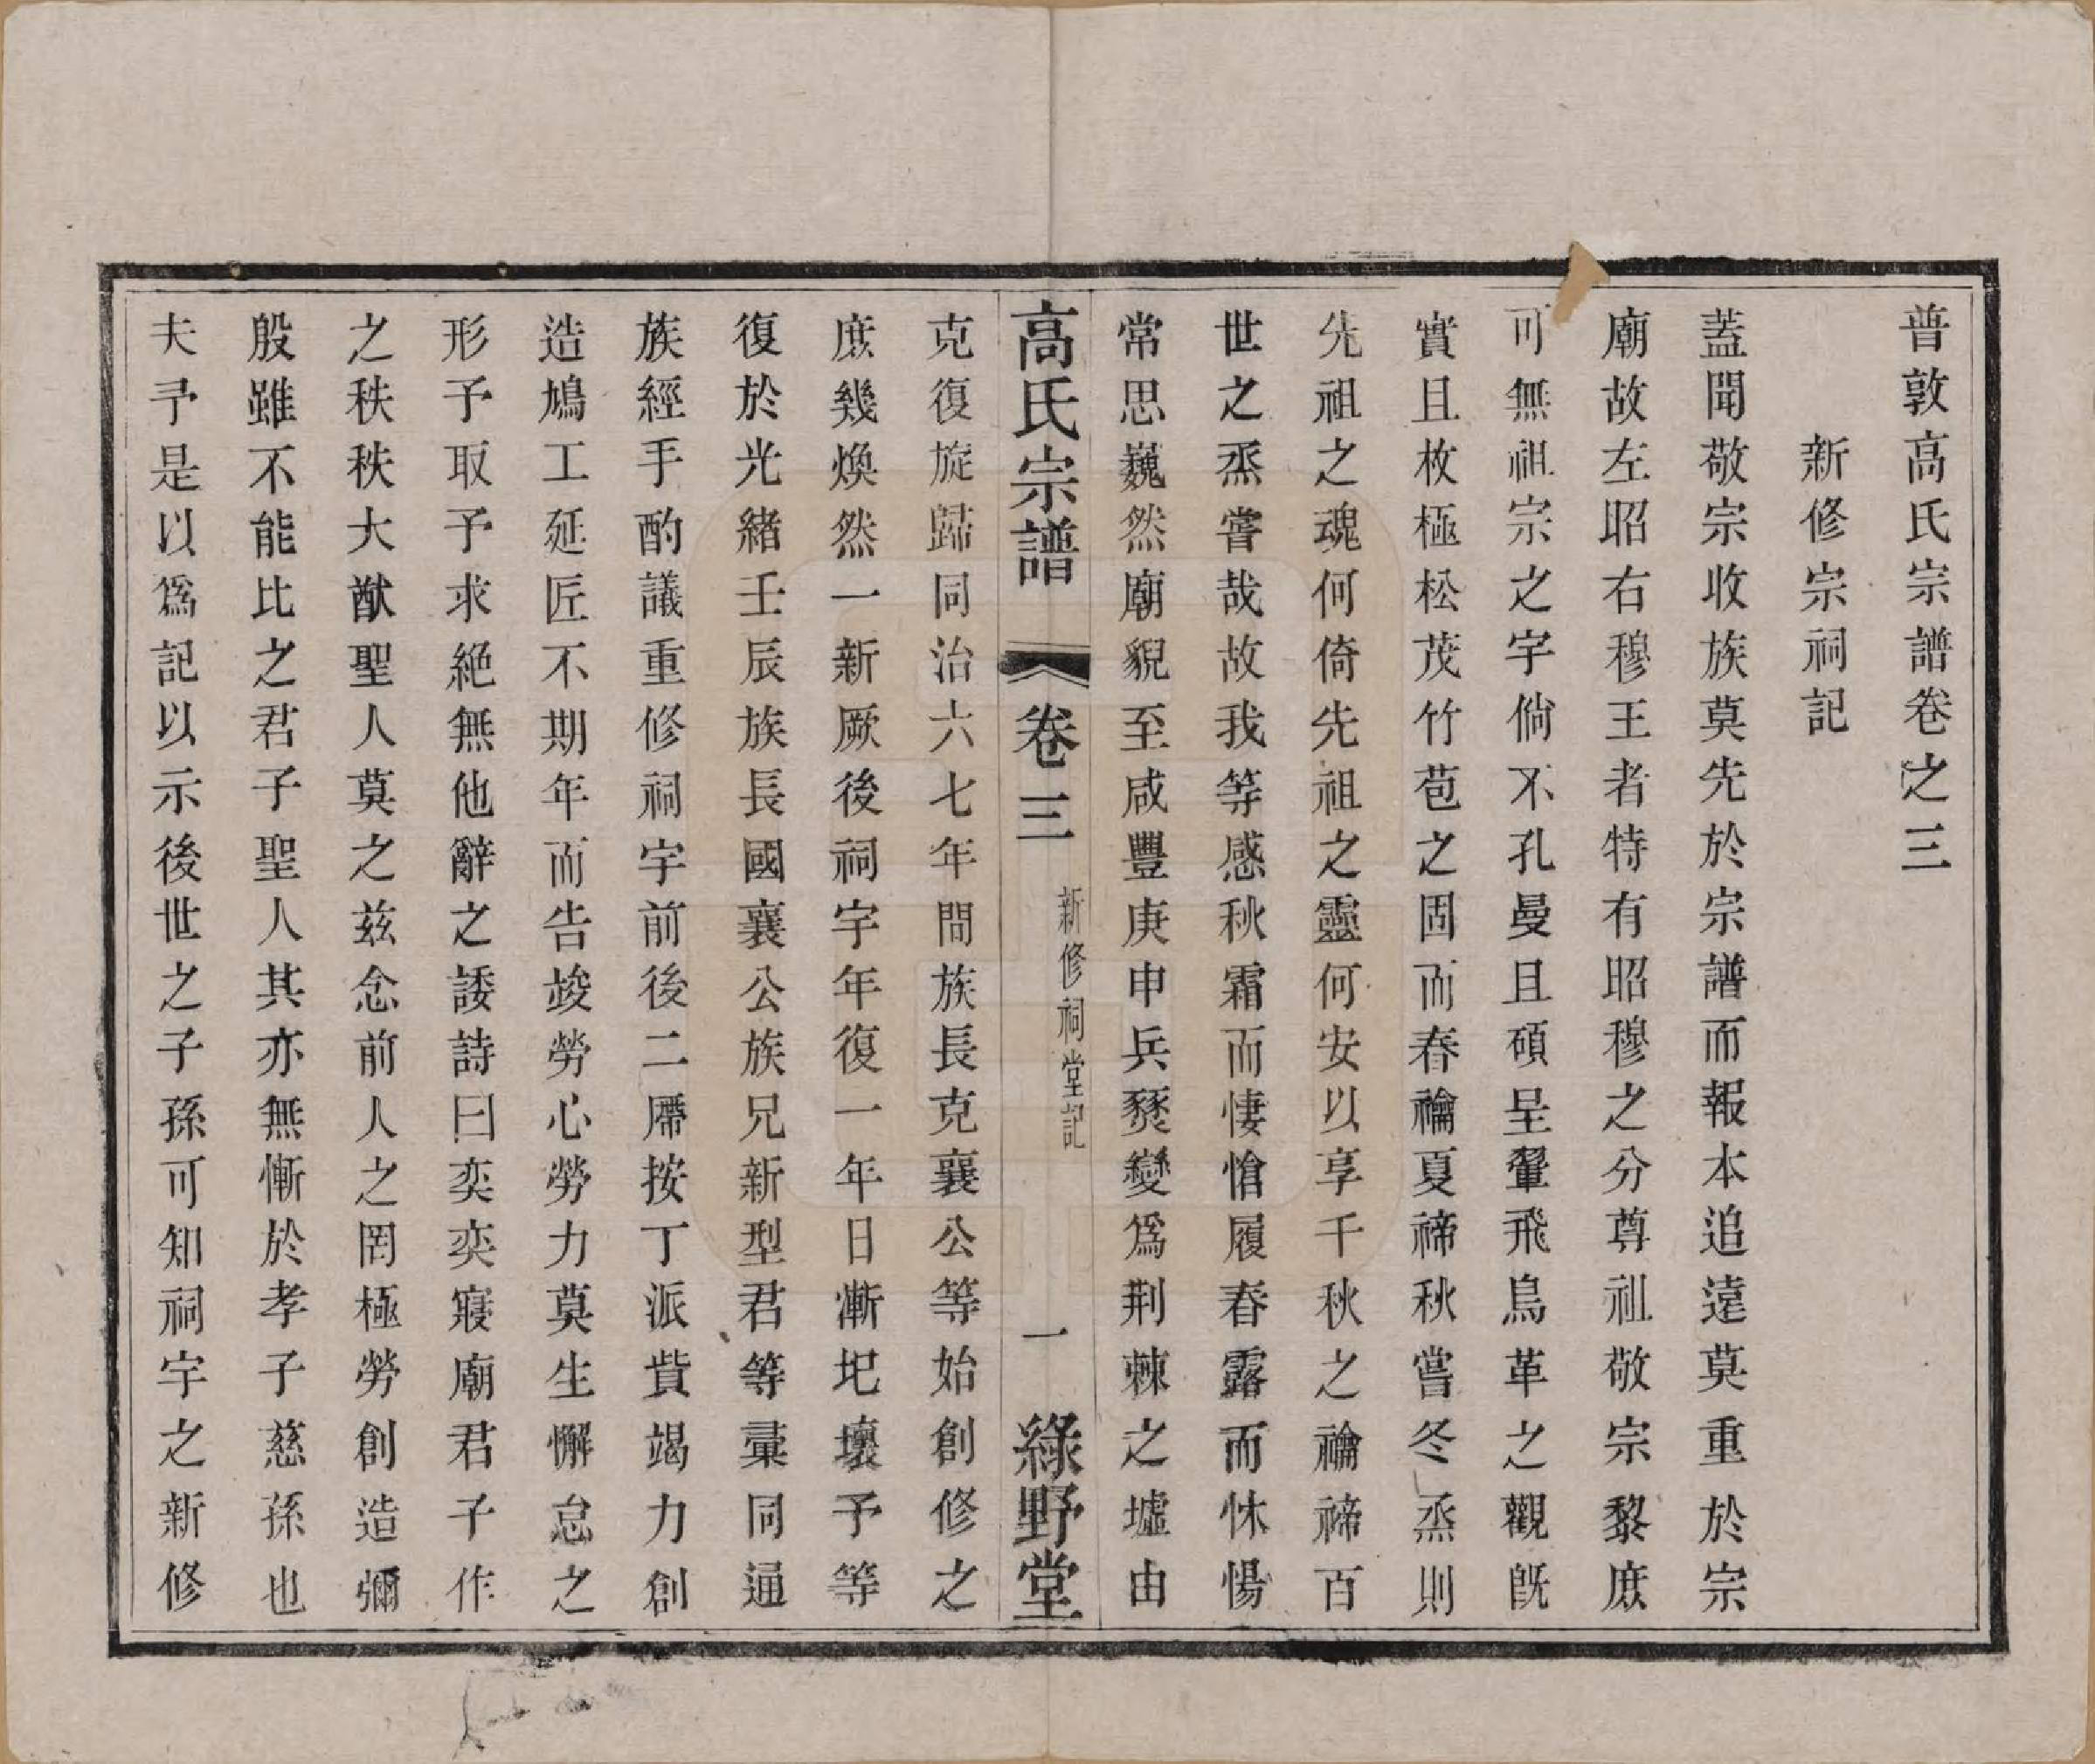 普敦高氏宗譜卷之三
新修宗祠記
蓋聞敬宗收族莫先於宗譜而報本追遠莫重於宗
廟故左昭右穆王者特有昭穆之分尊祖敬宗黎庶
可無祖宗之宇倘不孔曼且碩呈翬飛鳥革之觀既
實且枚極松茂竹苞之固而春禴夏禘秋嘗冬烝則
先祖之魂何倚先祖之靈何安以享千秋之禴禘百
世之烝嘗哉故我等感秋霜而悽愴履春露而怵惕
常思巍然廟貌至咸豐庚申兵燹變爲荆棘之墟由
高氏宗譜 卷三 新修祠堂記 一 綠野堂
克復旋歸同治六七年間族長克襄公等始創修之
庶幾煥然一新厥後祠宇年復一年日漸圮壞予等
復於光緒壬辰族長國襄公族兄新型君等彙同通
族經手酌議重修祠宇前後二厝按丁派貲竭力創
造鳩工延匠不期年而告竣勞心勞力莫生懈怠之
形予取予求絕無他辭之諉詩曰奕奕寢廟君子作
之秩秩大猷聖人莫之茲念前人之罔極勞創造彌
殷雖不能比之君子聖人其亦無慚於孝子慈孫也
夫予是以爲記以示後世之子孫可知祠宇之新修